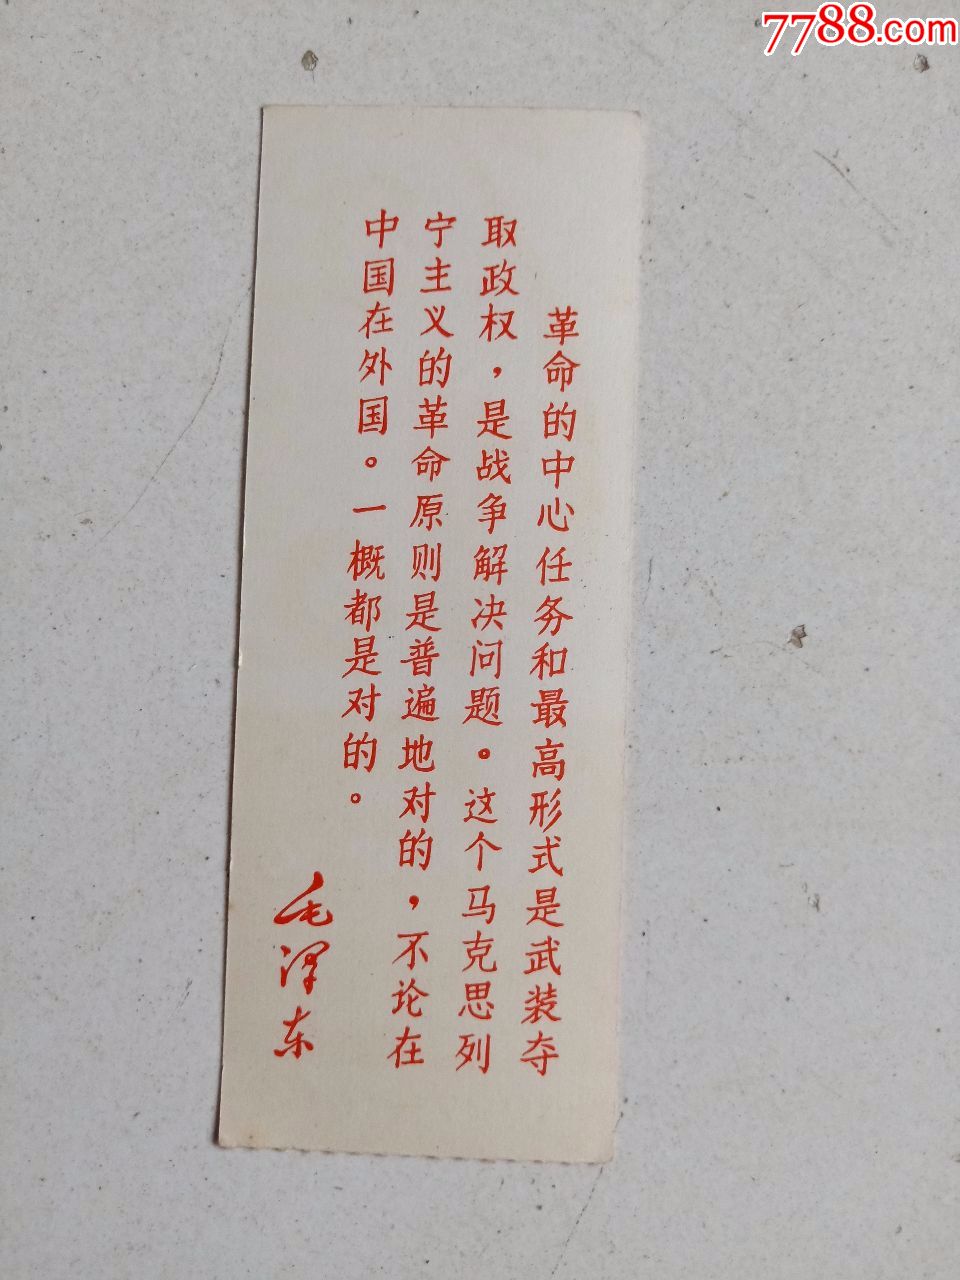 7788.com
革命的中心任务和最高形式是武装夺
取政权，是战争解决问题。这个马克思列
宁主义的革命原则是普遍地对的，不论在
中国在外国。一概都是对的。
毛泽东